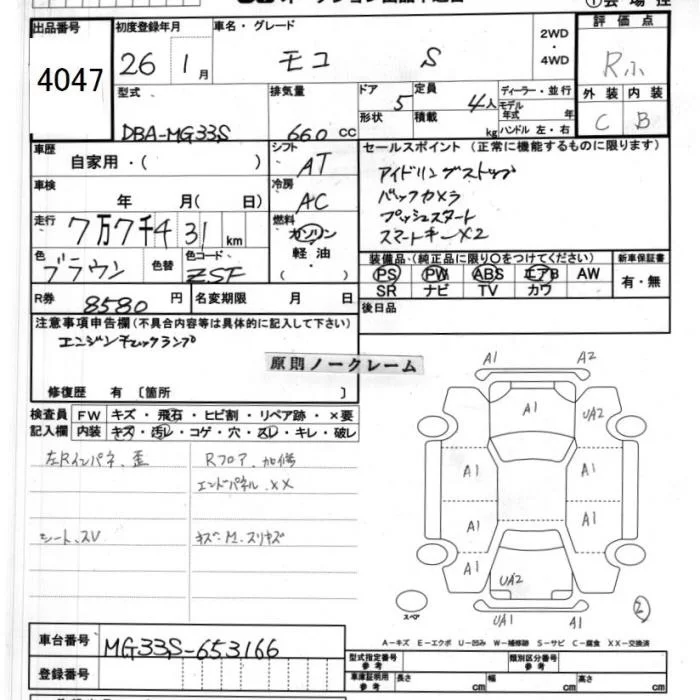 出品番号 初度登録年月 車名・グレード 2WD・4WD 評価点
4047 26 1月 モコ S R
型式 排気量 ドア 定員 ディーラー・並行 外装 内装
DBA-MG33S 660 cc 5 4人 モデル年式 年 C B
形状 積載 kg ハンドル 左・右
車歴 シフト セールスポイント (正常に機能するものに限ります)
自家用・( ) AT アイドリングストップ
車検 冷房 バックカメラ
年 月( 日) AC プッシュスタート
走行 燃料 スマートキーX2
7万7千431 km ガソリン
色 色替 色コード 軽油・ 装備品(純正品に限り○をつけてください) 新車保証書
ブラウン ZSF ( ) PS PW ABS エアB AW 有・無
SR ナビ TV カワ
R券 8580円 名変期限 月 日 後日品
注意事項申告欄(不具合内容等は具体的に記入して下さい)
エンジンチェックランプ
原則ノークレーム
修復歴 有 〔箇所 〕
検査員 FW キズ・飛石・ヒビ割・リペア跡・×要
記入欄 内装 キズ・汚レ・コゲ・穴・スレ・キレ・破レ
左Rインパネ、歪 Rフロア、加修
エンドパネル、XX
シート、SV キズ・M、スリキズ
A1 A2
A1 UA2
A1 A1
A1 A1
A1 UA2 A1
スペア UA1 A1 2
A-キズ E-エクボ U-凹み W-補修跡 S-サビ C-腐食 XX-交換済
車台番号 MG33S-653166
型式指定番号 参考 類別区分番号 参考
登録番号 車庫証明用 参考 長さ cm 幅 cm 高さ cm